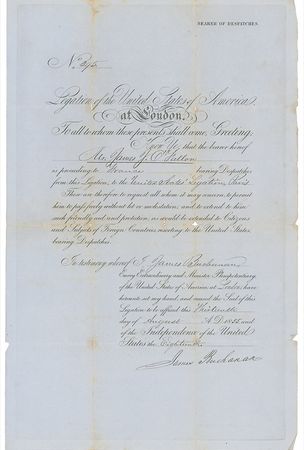 BEARER OF DESPATCHES.
Legation of the United States of America,
at London.
To all to whom these presents shall come, Greeting:
that the bearer hereof
Mr. James J. O'Fallon
is proceeding to France bearing Despatches
from this Legation, to the United States' Legation Paris
These are therefore to request all whom it may concern, to permit
him to pass freely without let or molestation; and to extend to him
such friendly aid and protection, as would be extended to Citizens
and Subjects of Foreign Countries resorting to the United States,
bearing Despatches.
In testimony whereof I, James Buchanan
Envoy Extraordinary and Minister Plenipotentiary
of the United States of America, at London, have
hereunto set my hand, and caused the Seal of this
Legation to be affixed this Thirteenth
day of August A.D. 1855 and
of the Independence of the United
States the Eightieth.
James Buchanan